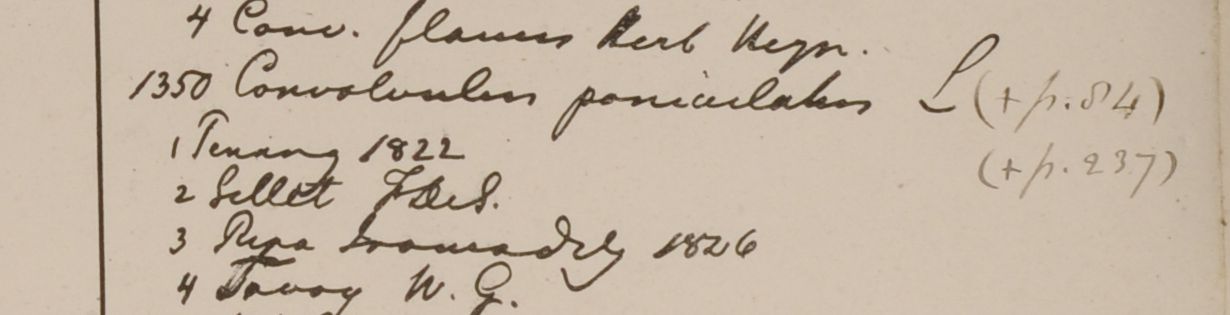 4 Conv. flavus Herb Heyn.
1350 Convolvulus paniculatus L (+ p. 84)
1 Penang 1822
(+ p. 237)
2 Sillet F.DeS.
3 Ripa Irawaddy 1826
4 Tavoy W. G.